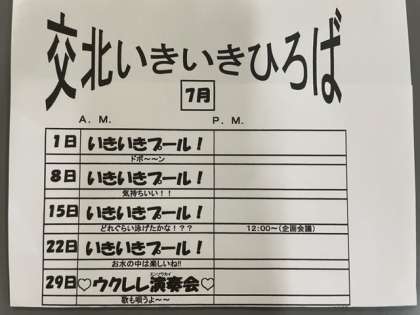 交北いきいきひろば
7月
A.M. P.M.
1日 いきいきプール!
ドボ~~ン
8日 いきいきプール!
気持ちいい!!
15日 いきいきプール!
どれぐらい泳げたかな!?? 12:00~(企画会議)
22日 いきいきプール!
お水の中は楽しいね!!
エンソウカイ
29日 ♡ウクレレ演奏会♡
歌も唄うよ~~